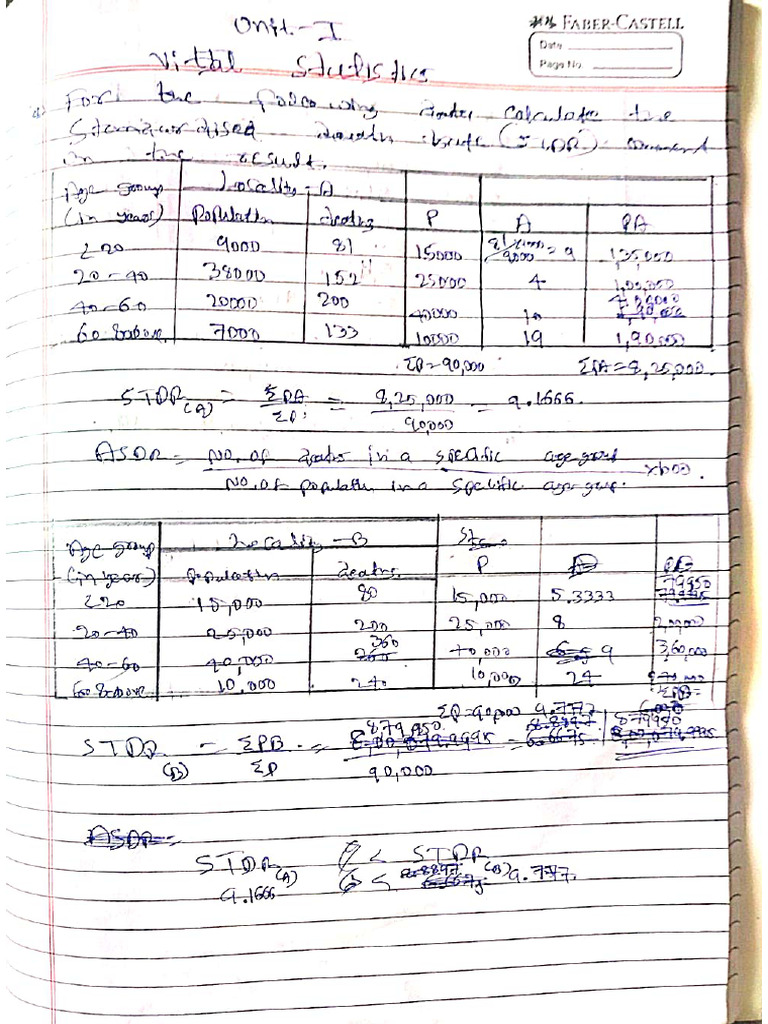 Unit - I
FABER-CASTELL
Date
Page No.
Vital Statistics
For the following data calculate the
Standardised death rate (STDR) comment
in the result.
Age group Locality - A
(in years) Population deaths P A PA
∠20 9000 81 15000 81/9000 = 9 1,35,000
20-40 38000 152 25000 4 1,00,000
40-60 20000 200 40000 10 4,00,000
60 & above 7000 133 10000 19 1,90,000
ΣP=90,000 ΣPA=8,25,000.
STDR(A) = ΣPA/ΣP = 8,25,000/90,000 = 9.1666.
ASDR = No. of deaths in a specific age group
No. of population in a specific age group.
Age group Locality - B
(in year) Population deaths P PB
∠20 15,000 80 15,000 5.3333 79950
20-40 25,000 200 25,000 8 200000
40-60 40,000 360 40,000 9 3,60,000
60 & above 10,000 240 10,000 24
ΣP=90,000 9.777
STDR(B) = ΣPB/ΣP = 8,79,950/90,000 879950
ASDR =
STDR(A) < STDR(B)
9.1666 < 9.777.